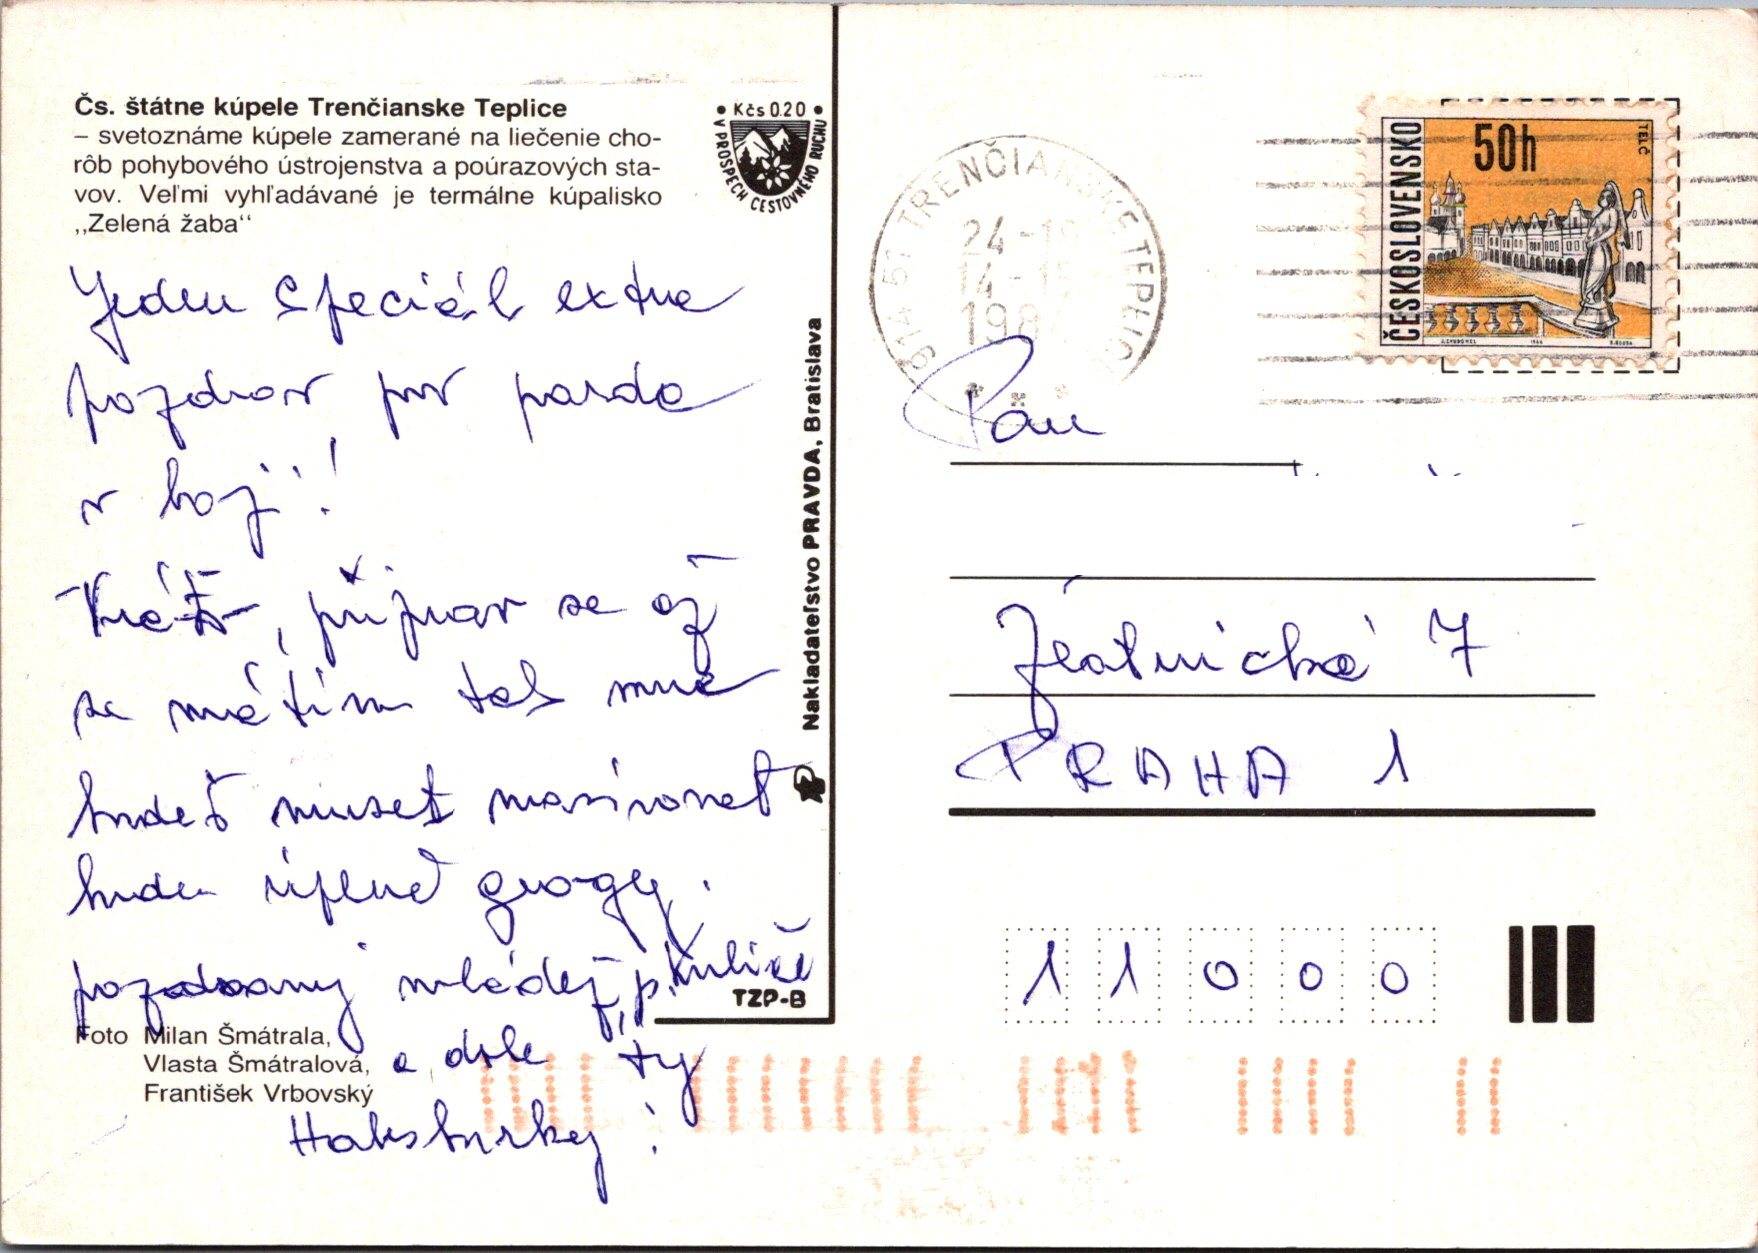 Čs. štátne kúpele Trenčianske Teplice
– svetoznáme kúpele zamerané na liečenie cho-
rôb pohybového ústrojenstva a poúrazových sta-
vov. Veľmi vyhľadávané je termálne kúpalisko
,,Zelená žaba“
Kčs 0.20
V PROSPECH CESTOVNÉHO RUCHU
Jeden speciál extra
pozdrav pro parda
v boji!
, připrav se až
se vrátím tak mne
budeš muset masírovat
budu úplně grogy.
pozdravuj mládež, p. Kuliče
a dole ty
Habsburky!
Foto Milan Šmátrala,
Vlasta Šmátralová,
František Vrbovský
TZP-B
Nakladateľstvo PRAVDA, Bratislava
914 51 TRENČIANSKE TEPLICE
24
14
198
ČESKOSLOVENSKO
50h
TELČ
Pan
Žatnická 7
PRAHA 1
11000